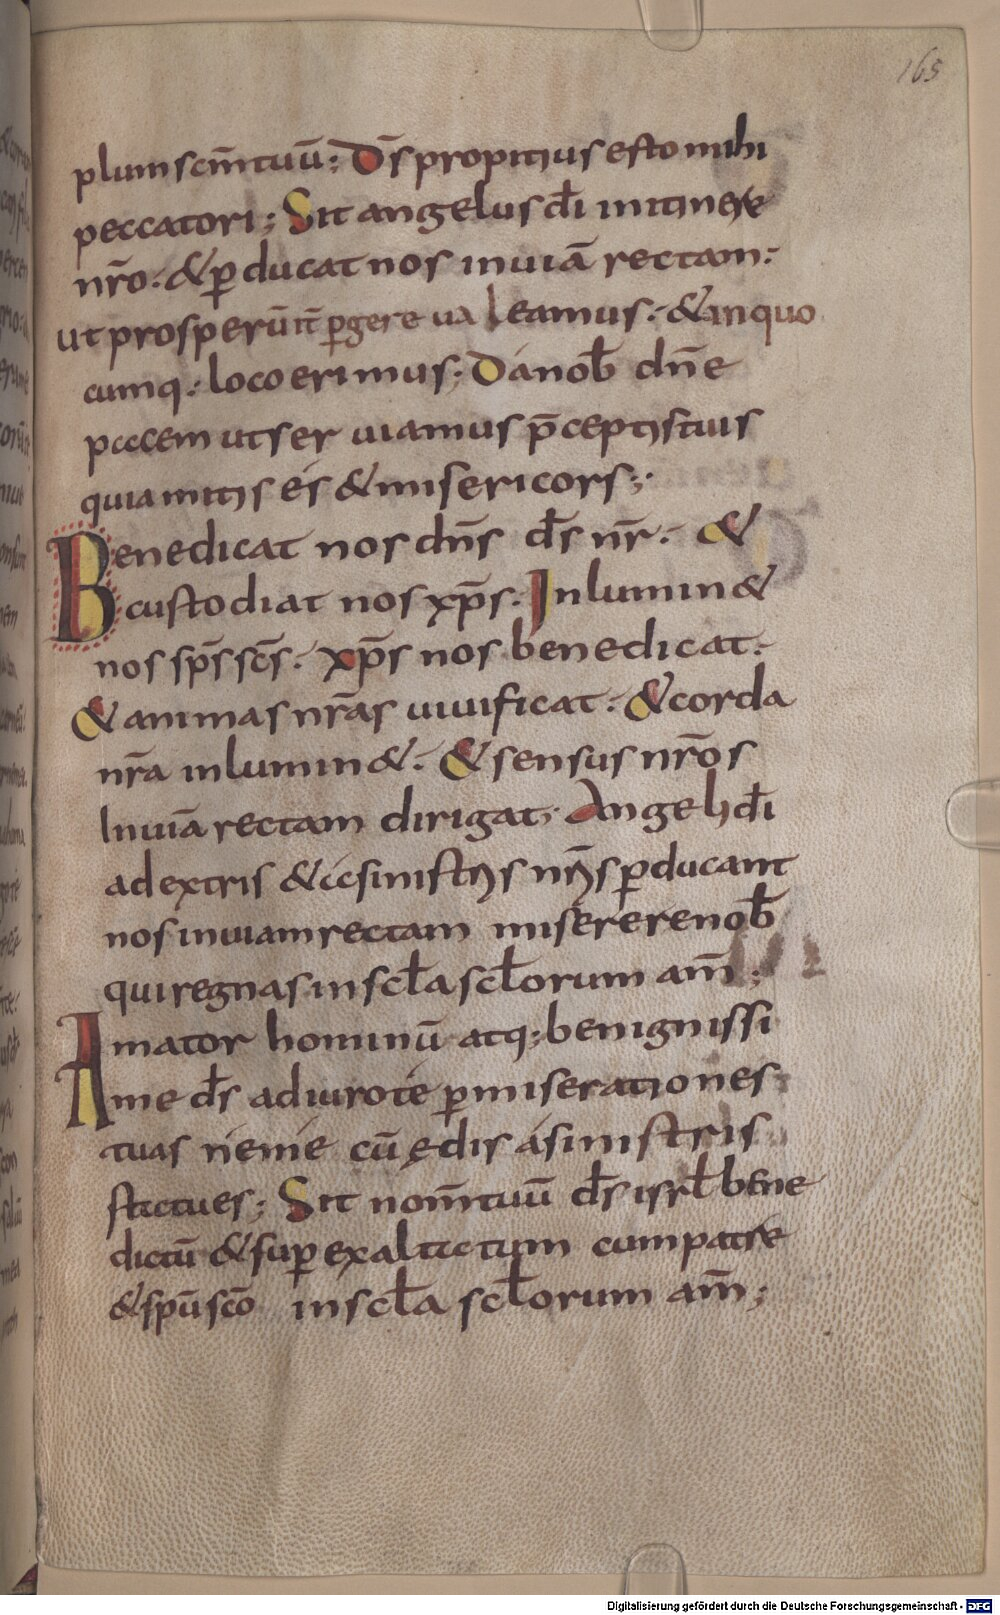 165
plum scm̄ tuū; Ds̄ propitius esto mihi
peccatori; Sit angelus dī in itinere
nrō. & ꝑducat nos in uiā rectam:
ut prosperū it̄ ꝑgere ualeamus. & inquo
cumq: loco erimus; Da nob̄ dn̄e
pacem ut seruiamus p̄ceptis tuis
quia mitis és & misericors;
Benedicat nos dn̄s ds̄ nr̄. &
custodiat nos xp̄s. Inlumin&
nos sp̄s scs̄. xp̄s nos benedicat.
& animas nrās uiuificat. & corda
nrā inlumin&. & sensus nrōs
In uiā rectam dirigat; Angeli dī
ad extris & a sinistris nr̄is ꝑducant
nos in uiam rectam miserere nob̄
qui regnas in sc̄la sc̄lorum am̄;
Amator hominū atq; benignissi
me ds̄ adiuro te ꝑ miserationes
tuas ne me cū ędis a sinistris
statues; Sit nom̄ tuū ds̄ isrl̄ bene
dictū & suꝑexaltatum cum patre
& spū scō in sc̄la sc̄lorum am̄;
Digitalisierung gefördert durch die Deutsche Forschungsgemeinschaft - DFG